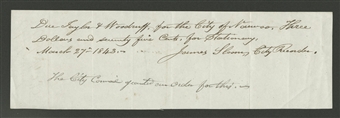 Due Taylor & Woodruff, for the City of Nauvoo, Three
Dollars and seventy five Cents, for Stationery,
March 27th 1843. James Sloan, City Recorder.
The City Council granted an order for this.